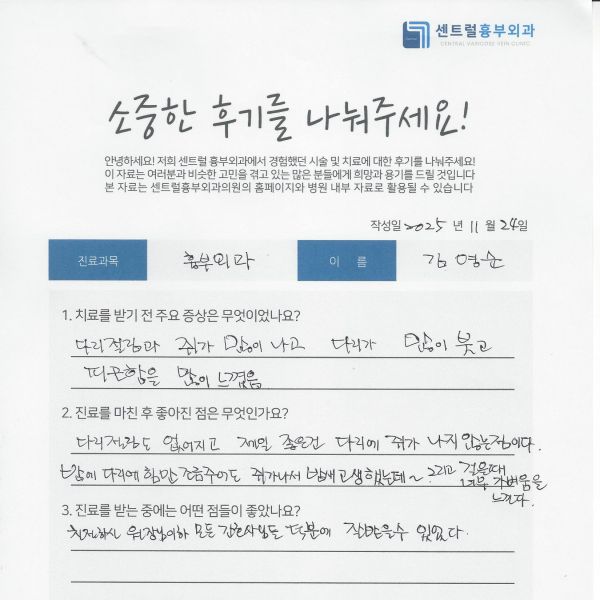 센트럴흉부외과
CENTRAL VARICOSE VEIN CLINIC
소중한 후기를 나눠주세요!
안녕하세요! 저희 센트럴 흉부외과에서 경험했던 시술 및 치료에 대한 후기를 나눠주세요!
이 자료는 여러분과 비슷한 고민을 겪고 있는 많은 분들에게 희망과 용기를 드릴 것입니다
본 자료는 센트럴흉부외과의원의 홈페이지와 병원 내부 자료로 활용될 수 있습니다
작성일 2025 년 11 월 24일
진료과목 흉부외과 이 름 김영순
1. 치료를 받기 전 주요 증상은 무엇이었나요?
다리저림과 쥐가 많이 나고 다리가 많이 붓고
피곤함을 많이 느꼈음
2. 진료를 마친 후 좋아진 점은 무엇인가요?
다리저림도 없어지고 제일 좋은건 다리에 쥐가 나지 않는점이다.
밤에 다리에 힘만 조금주어도 쥐가나서 밤새고생했는데~ 그리고 걸을때
너무 가벼움을
느낀다.
3. 진료를 받는 중에는 어떤 점들이 좋았나요?
친절하신 원장님이하 모든 간호사님들 덕분에 잘받을수 있었다.